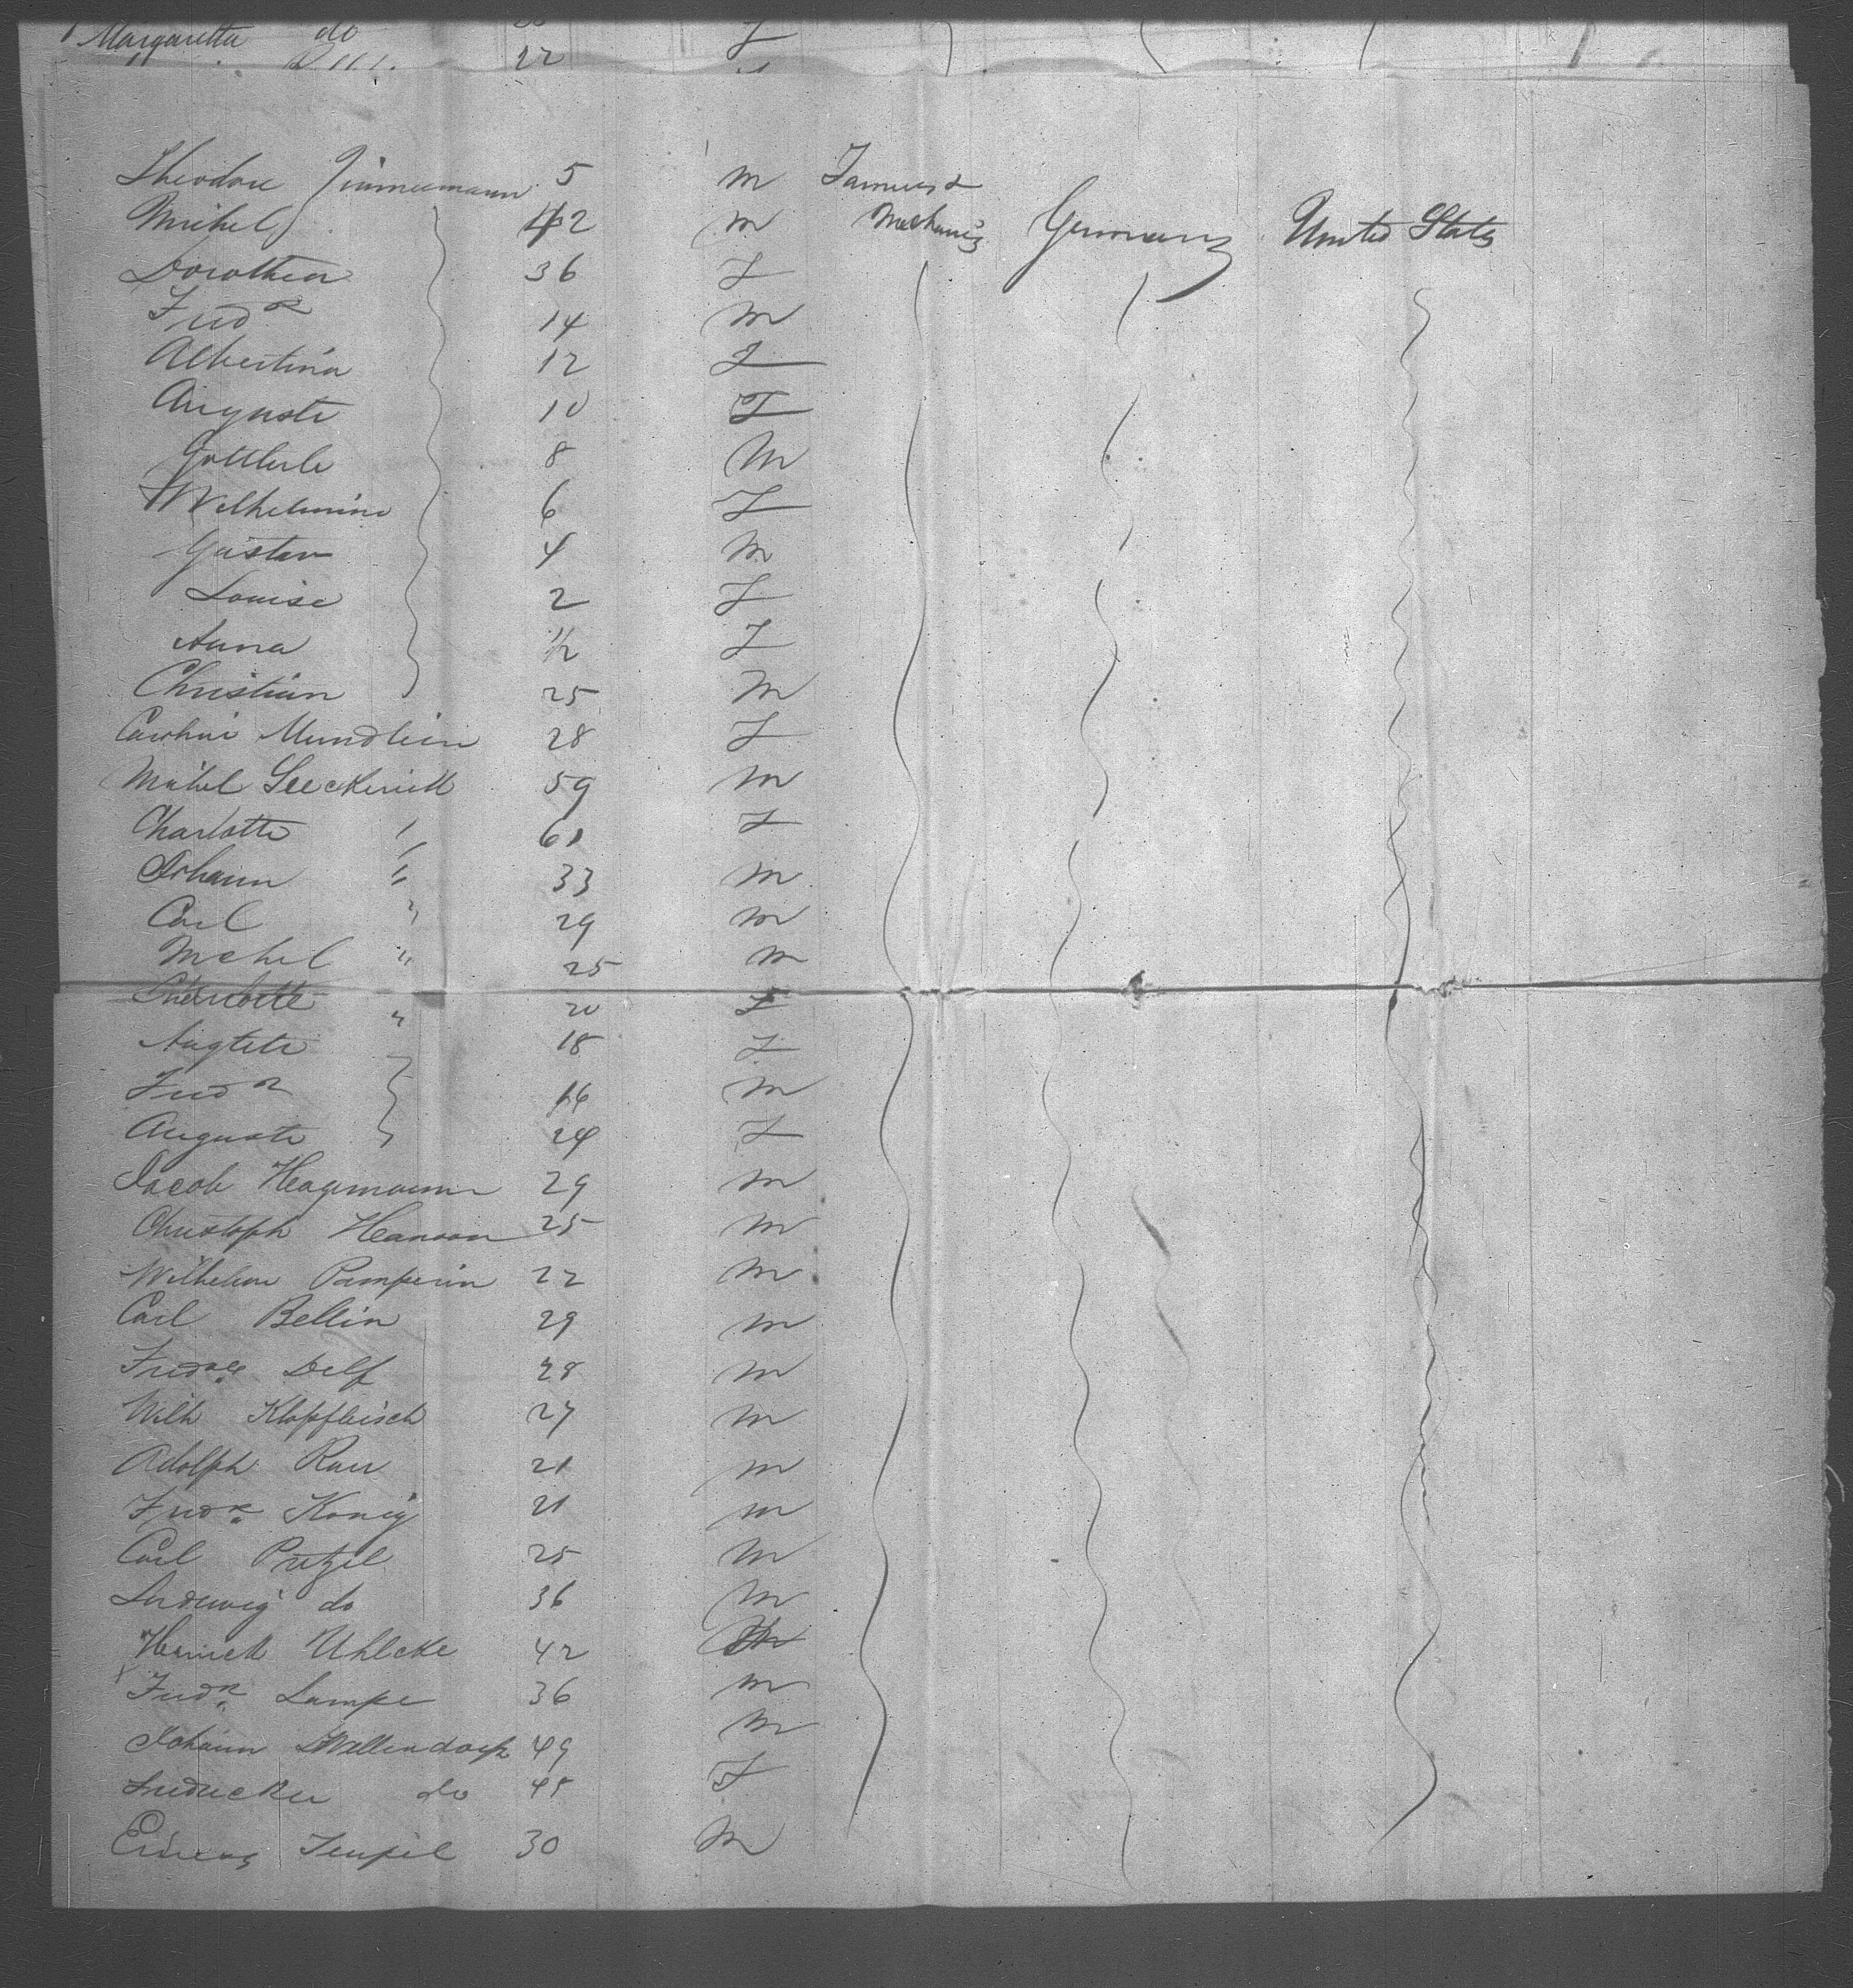 Margaretta do F
22
Theodore Zimmermann 5 m Farmers &
Michel 42 m Mechanics Germany United States
Dorothea 36 F
Fredk 14 m
Albertina 12 F
Auguste 10 F
Gottlieb 8 m
Wilhelmine 6 F
Gustav 4 m
Louise 2 F
Anna 1/2 F
Christian 25 m
Caroline Mundlein 28 F
Michel 59 m
Charlotte " 61 F
Johann " 33 m
Carl " 29 m
Michel " 25 m
Charlotte " 20 F
18 F
Fredk 16 m
Auguste 24 F
Jacob Hagemann 29 m
Christoph Hanson 25 m
Wilhelm Pamperin 22 m
Carl Bellin 29 m
Delf 28 m
Wilh Klopfleisch 27 m
Adolph Rau 21 m
Fredk Konig 21 m
Carl Pretzel 25 m
Ludewig do 36 m
Heinrich Uhlcke 42 m
Fredk Lampe 36 m
Johann 49 m
do 45 F
30 m